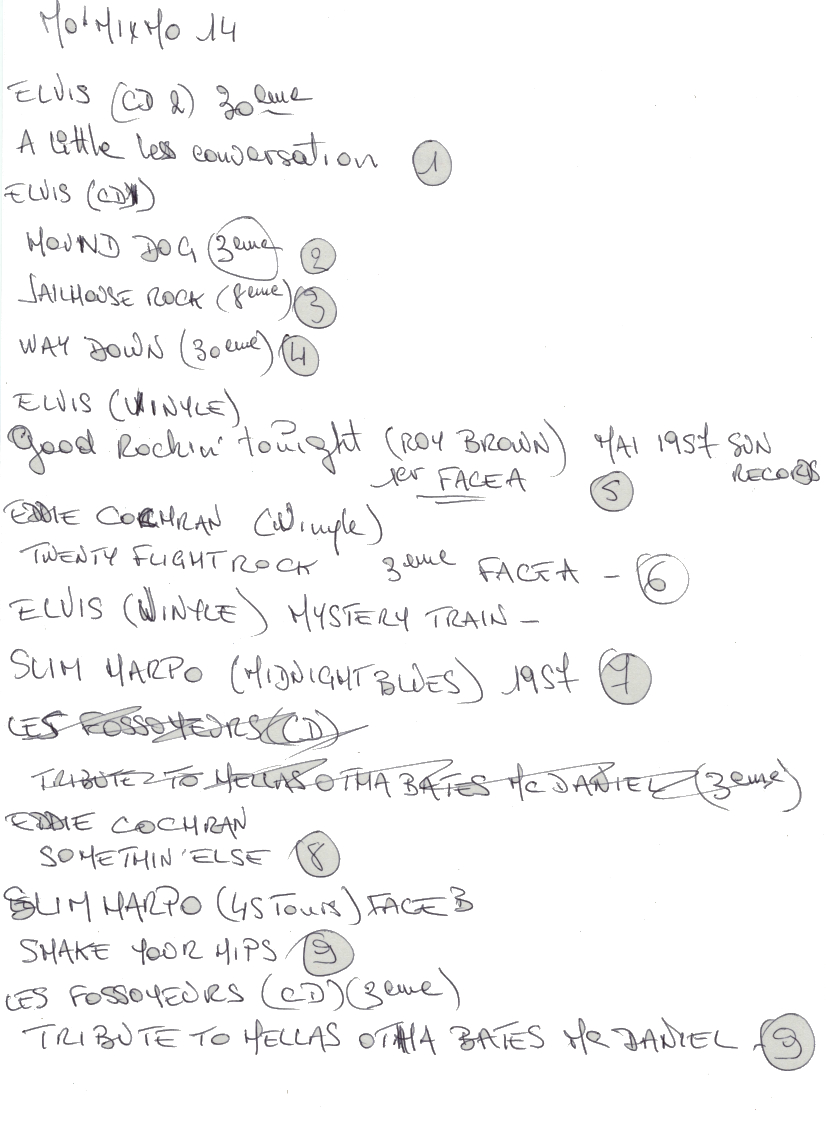 Mo'Mixmo 14
ELVIS (CD 2) 30eme
A little less conversation 1
ELVIS (CD1)
HOUND DOG (3eme) 2
JAILHOUSE ROCK (8eme) 3
WAY DOWN (30eme) 4
ELVIS (VINYLE)
Good Rockin' tonight (ROY BROWN) MAI 1957 SUN
RECORDS
1er FACE A 5
EDDIE COCHRAN (Vinyle)
TWENTY FLIGHT ROCK 3eme FACE A - 6
ELVIS (VINYLE) MYSTERY TRAIN -
SLIM HARPO (MIDNIGHT BLUES) 1957 7
LES FOSSOYEURS (CD)
TRIBUTE TO HELLAS OTHA BATES Mc DANIEL (3eme)
EDDIE COCHRAN
SOMETHIN' ELSE 8
SLIM HARPO (45 Tours) FACE B
SHAKE YOUR HIPS 9
LES FOSSOYEURS (CD) (3eme)
TRIBUTE TO HELLAS OTHA BATES Mc DANIEL - 9